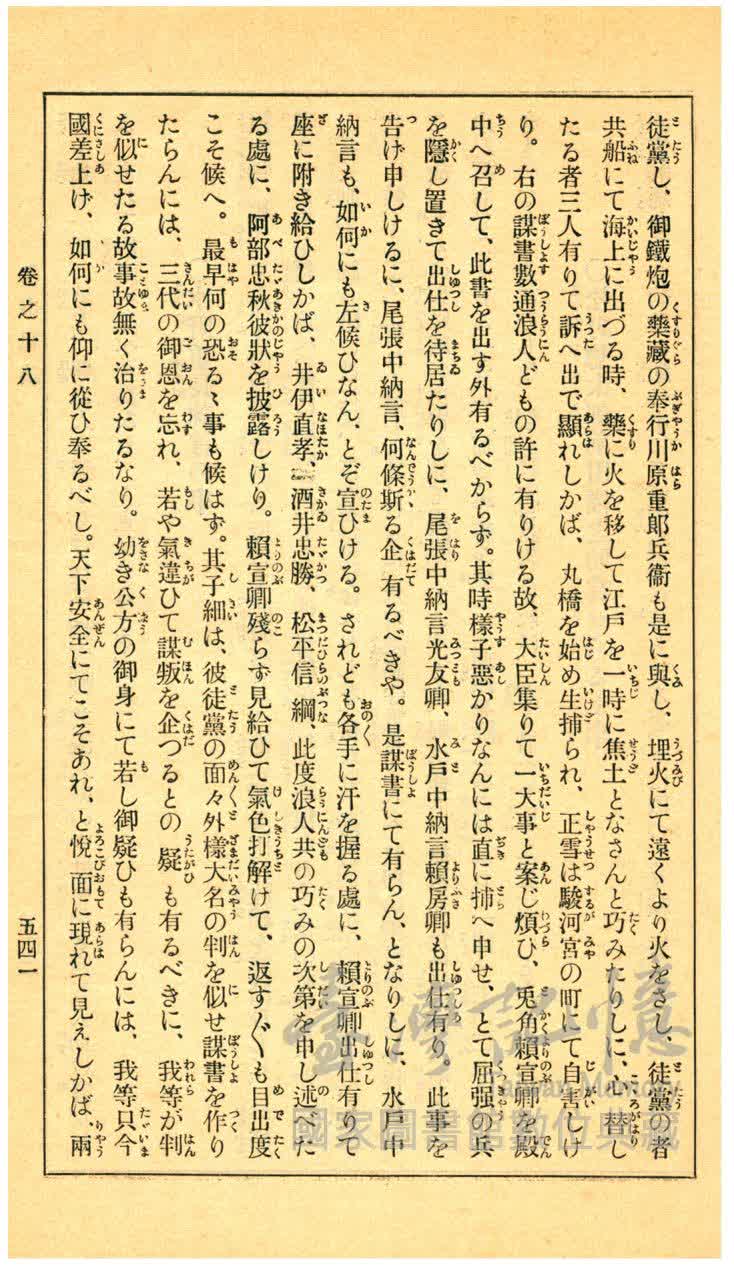 徒黨し、御鐵炮の藥藏の奉行川原重郎兵衞も是に與し、埋火にて遠くより火をさし、徒黨の者
共船にて海上に出づる時、藥に火を移して江戸を一時に焦土となさんと巧みたりしに、心替し
たる者三人有りて訴へ出で顯れしかば、丸橋を始め生捕られ、正雪は駿河宮の町にて自害しけ
り。右の謀書數通浪人どもの許に有りける故、大臣集りて一大事と案じ煩ひ、兎角賴宣卿を殿
中へ召して、此書を出す外有るべからず。其時樣子惡かりなんには直に捕へ申せ、とて屈强の兵
を隱し置きて出仕を待居たりしに、尾張中納言光友卿、水戸中納言賴房卿も出仕有り。此事を
告げ申しけるに、尾張中納言、何條斯る企有るべきや。是謀書にて有らん、となりしに、水戸中
納言も、如何にも左候ひなん、とぞ宣ひける。されども各手に汗を握る處に、賴宣卿出仕有りて
座に附き給ひしかば、井伊直孝、酒井忠勝、松平信綱、此度浪人共の巧みの次第を申し述べた
る處に、阿部忠秋彼狀を披露しけり。賴宣卿殘らず見給ひて氣色打解けて、返すぐも目出度
こそ候へ。最早何の恐るゝ事も候はず。其子細は、彼徒黨の面々外樣大名の判を似せ謀書を作り
たらんには、三代の御恩を忘れ、若や氣違ひて謀叛を企つるとの疑も有るべきに、我等が判
を似せたる故事故無く治りたるなり。幼き公方の御身にて若し御疑ひも有らんには、我等只今
國差上げ、如何にも仰に從ひ奉るべし。天下安全にてこそあれ、と悅面に現れて見えしかば、兩
卷之十八
五四一
臺灣記憶
Taiwan Memory
國家圖書館數位典藏